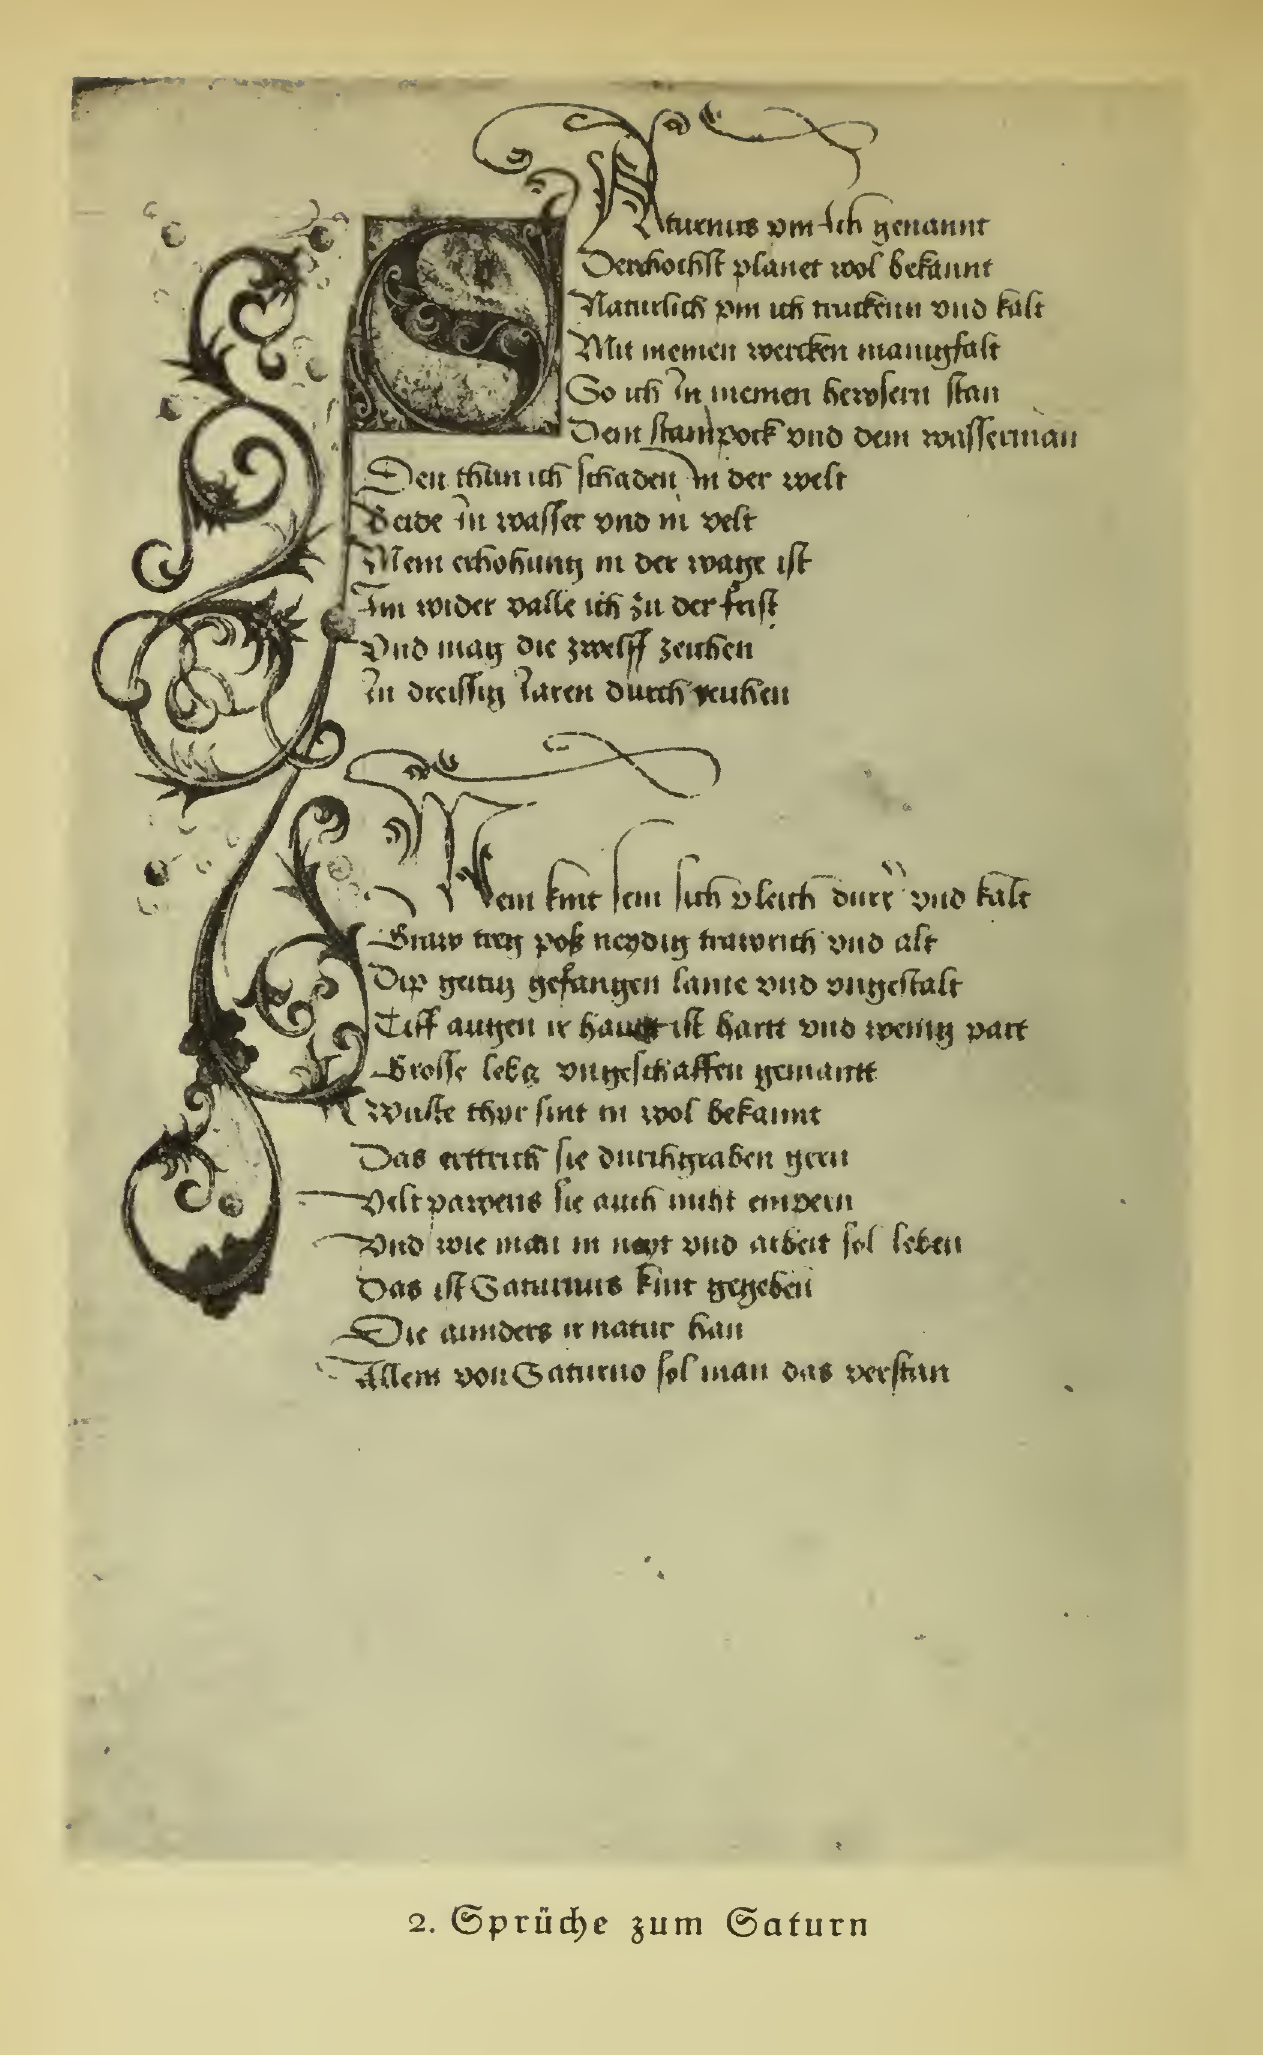 SAturnus pin ich genannt
Der hochst planet wol bekannt
Naturlich pin ich truckenn vnd kalt
Mit meinen wercken manigfalt
So ich in meinen hewsern stan
Dem stainpock vnd dem wasserman
Den thun ich schaden in der welt
Beide in wasser vnd in velt
Mein erhohung in der wage ist
Im wider valle ich zu der frist
Vnd mag die zwelff zeichen
In dreissig iaren durch reichen
Mein kint sein sich pleich durr vnd kalt
Graw treg poß neydig trawrich vnd alt
Dip geitig gefangen lame vnd vngestalt
Tiff augen ir haut ist hart vnd wenig part
Grosse vngeschaffen gemantt
Wuste thyr sint in wol bekannt
Das erttrich sie durchgraben gern
Velt pawens sie auch nicht empern
Vnd wie man in nott vnd arbeit sol leben
Das ist Saturnus kint gegeben
Die annders ir natur han
Allein von Saturno sol man das verstan
2. Sprüche zum Saturn